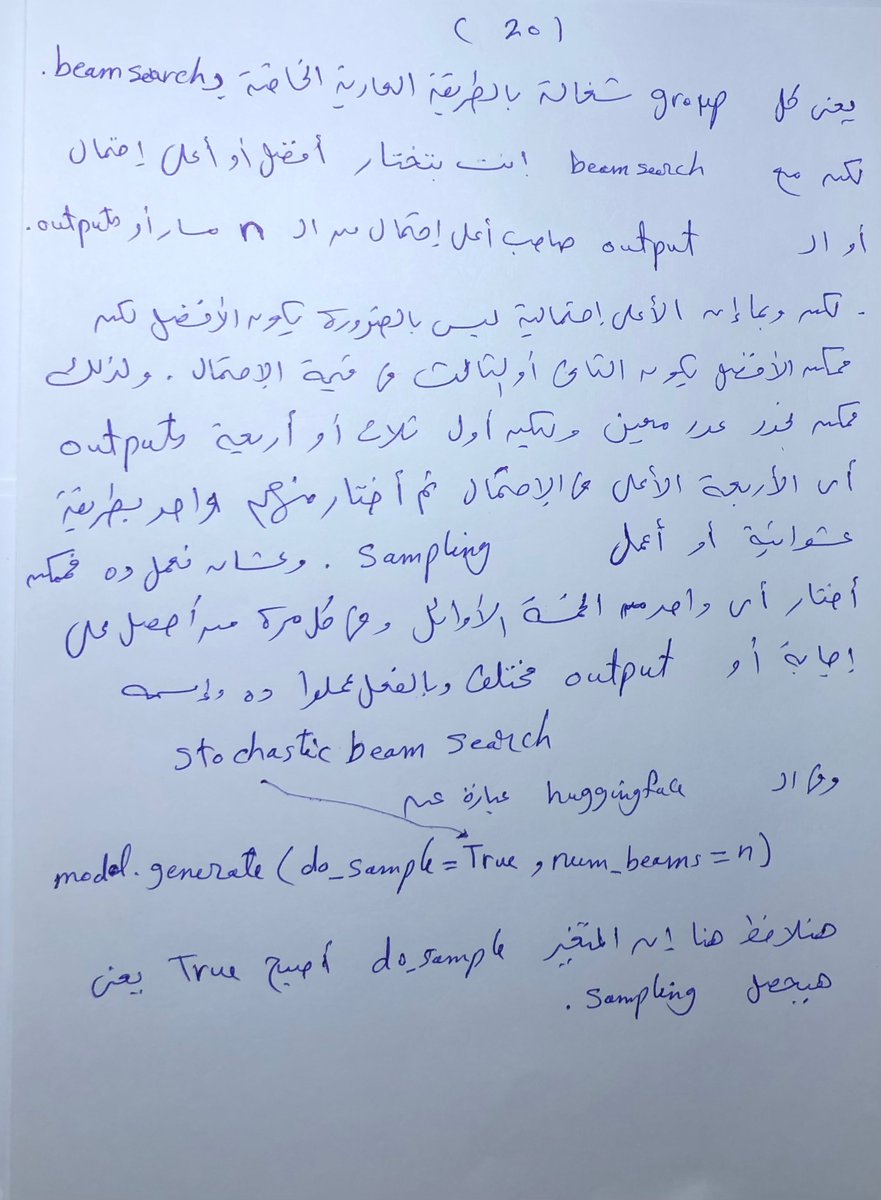 (20)
يعنى كل group شغالة بالطريقة العادية الخاصة بـ beam search.
لكن مع beam search انت بتختار أفضل أو أعلى إحتمال
أو الـ output صاحب أعلى إحتمال من الـ n مسار أو outputs.
. لكن وبما إن الأعلى إحتمالية ليس بالضرورة يكون الأفضل لكن
ممكن الأفضل يكون التانى أو التالت فى قيمة الإحتمال . ولذلك
ممكن نحدد عدد معين وليكن أول ثلاث أو أربعة outputs
أى الأربعة الأعلى فى الإحتمال ثم أختار منهم واحد بطريقة
عشوائية أو أعمل sampling . وعشان نعمل ده فممكن
أختار أى واحد من الخمسة الأوائل وفى كل مرة أحصل على
إجابة أو output مختلف وبالفعل عملوا ده وإسمه
stochastic beam search
وفى الـ huggingface عبارة عن
model.generate(do_sample=True , num_beams=n)
هنلاحظ هنا إن المتغير do_sample أصبح True يعنى
هيحصل sampling .